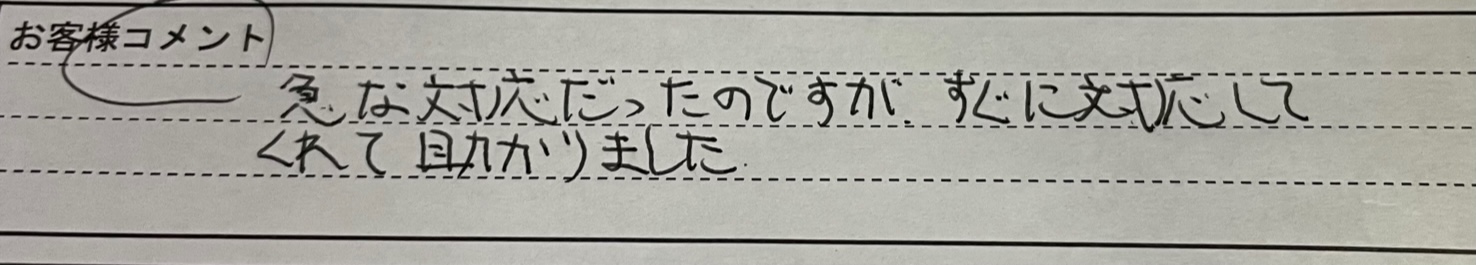 お客様コメント
急な対応だったのですが、すぐに対応して
くれて助かりました。